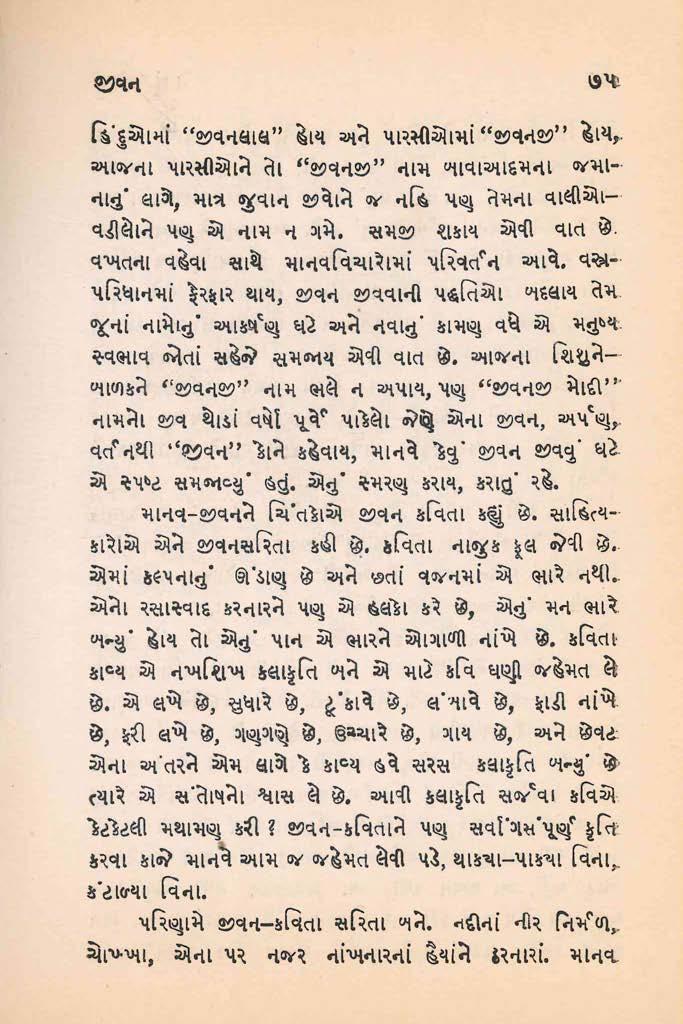 જીવન ૭૫
હિંદુઓમાં “જીવનલાલ” હોય અને પારસીઓમાં “જીવનજી” હોય,
આજના પારસીઓને તો “જીવનજી” નામ બાવાઆદમના જમા-
નાનું લાગે, માત્ર જુવાન જીવોને જ નહિ પણ તેમના વાલીઓ–
વડીલોને પણ એ નામ ન ગમે. સમજી શકાય એવી વાત છે.
વખતના વહેવા સાથે માનવવિચારોમાં પરિવર્તન આવે. વસ્ત્ર-
પરિધાનમાં ફેરફાર થાય, જીવન જીવવાની પદ્ધતિઓ બદલાય તેમ
જૂનાં નામોનું આકર્ષણ ઘટે અને નવાનું કામણ વધે એ મનુષ્ય
સ્વભાવ જોતાં સહેજે સમજાય એવી વાત છે. આજના શિશુને–
બાળકને “જીવનજી” નામ ભલે ન અપાય, પણ “જીવનજી મોદી”
નામનો જીવ થોડાં વર્ષો પૂર્વે પાકેલો જેણે એના જીવન, અર્પણ,
વર્તનથી “જીવન” કોને કહેવાય, માનવે કેવું જીવન જીવવું ઘટે
એ સ્પષ્ટ સમજાવ્યું હતું. એનું સ્મરણ કરાય, કરાતું રહે.
માનવ-જીવનને ચિંતકોએ જીવન કવિતા કહ્યું છે. સાહિત્ય-
કારોએ એને જીવનસરિતા કહી છે. કવિતા નાજુક ફૂલ જેવી છે.
એમાં કલ્પનાનું ઊંડાણ છે અને છતાં વજનમાં એ ભારે નથી.
એનો રસાસ્વાદ કરનારને પણ એ હલકો કરે છે, એનું મન ભારે
બન્યું હોય તો એનું પાન એ ભારને ઓગાળી નાંખે છે. કવિતા
કાવ્ય એ નખશિખ કલાકૃતિ બને એ માટે કવિ ઘણી જહેમત લે
છે. એ લખે છે, સુધારે છે, ટૂંકાવે છે, લંબાવે છે, ફાડી નાંખે
છે, ફરી લખે છે, ગણગણે છે, ઉચ્ચારે છે, ગાય છે, અને છેવટ
એના અંતરને એમ લાગે કે કાવ્ય હવે સરસ કલાકૃતિ બન્યું છે
ત્યારે એ સંતોષનો શ્વાસ લે છે. આવી કલાકૃતિ સર્જવા કવિએ
કેટકેટલી મથામણ કરી ? જીવન-કવિતાને પણ સર્વાંગસંપૂર્ણ કૃતિ
કરવા કાજે માનવે આમ જ જહેમત લેવી પડે, થાકયા–પાકયા વિના,
કંટાળ્યા વિના.
પરિણામે જીવન–કવિતા સરિતા બને. નદીનાં નીર નિર્મળ,
ચોખ્ખા, એના પર નજર નાંખનારનાં હૈયાંને ઠારનારાં. માનવ